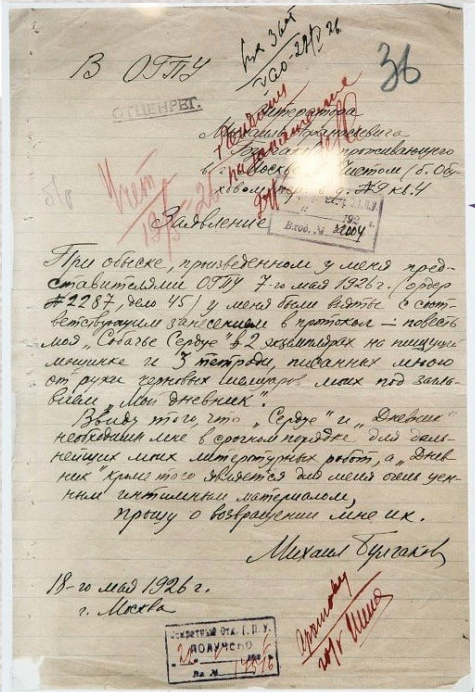 В ОГПУ
36
ОТЦЕНРЕГ.
Литератора
Михаила Афанасьевича
Булгакова, проживающего
в г. Москве, Чистом / б. Обу-
ховом / пер. д. № 9 кв. 4
Учет
Вход. №
Заявление
При обыске, произведенном у меня пред-
ставителями ОГПУ 7-го мая 1926 г. (ордер
№ 2287, дело 45) у меня были взяты с соот-
ветствующим занесением в протокол — повесть
моя „Собачье Сердце" в 2 экземплярах на пишущей
машинке и 3 тетради, писанных мною
от руки черновых мемуаров моих под загла-
вием „Мой дневник".
Ввиду того, что „Сердце" и „Дневник"
необходимы мне в срочном порядке для даль-
нейших моих литературных работ, а „Днев-
ник" кроме того является для меня очень цен-
ным интимным материалом,
прошу о возвращении мне их.
Михаил Булгаков
18-го мая 1926 г.
г. Москва
Секретный Отд. Г. П. У.
ПОЛУЧЕНО
Вх. №